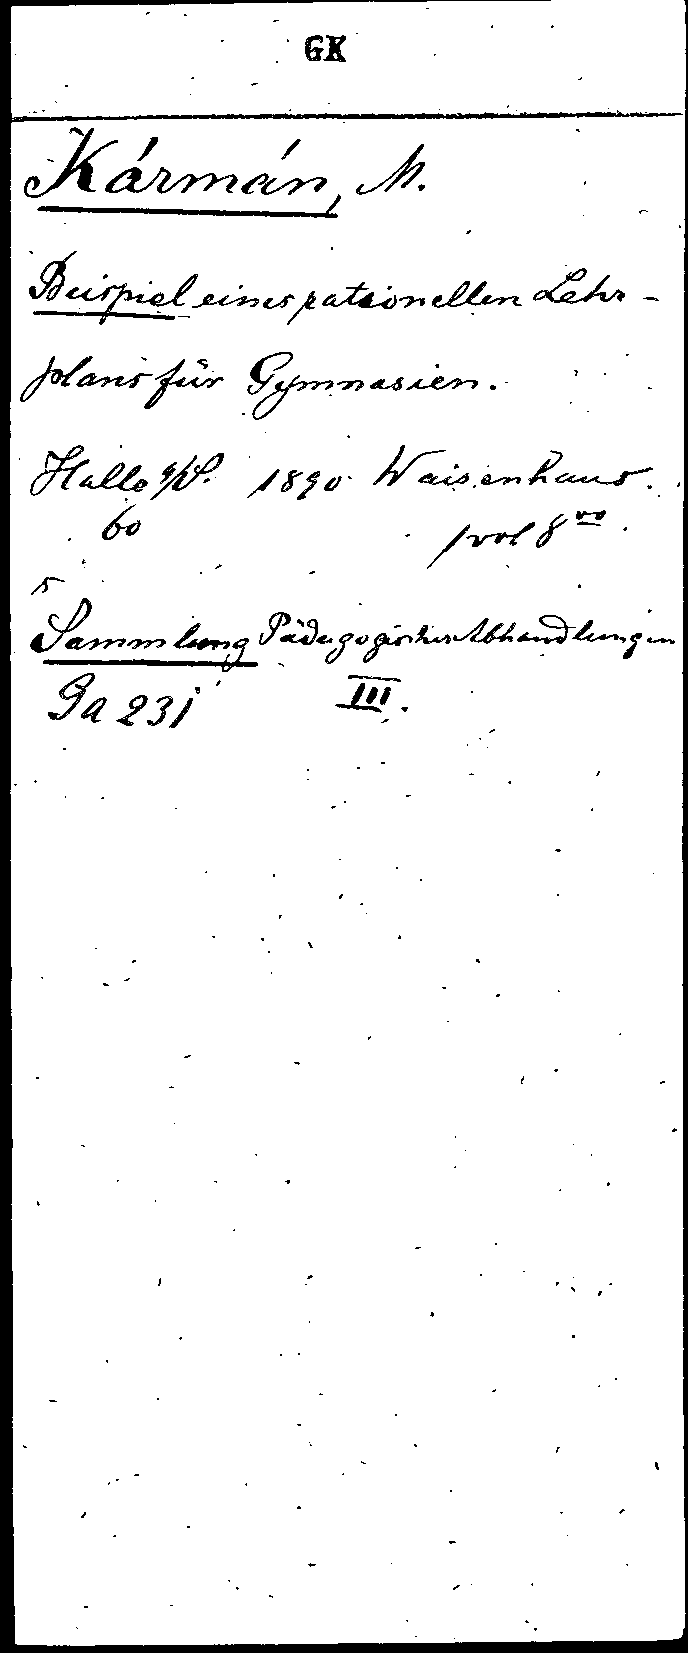 GK
Kármán, M.
Beispiel eines rationellen Lehr-
plans für Gymnasien.
Halle a/S. 1890 Waisenhaus.
60 1 vol 8vo.
Sammlung Pädagogischer Abhandlungen
Ga 231 III.